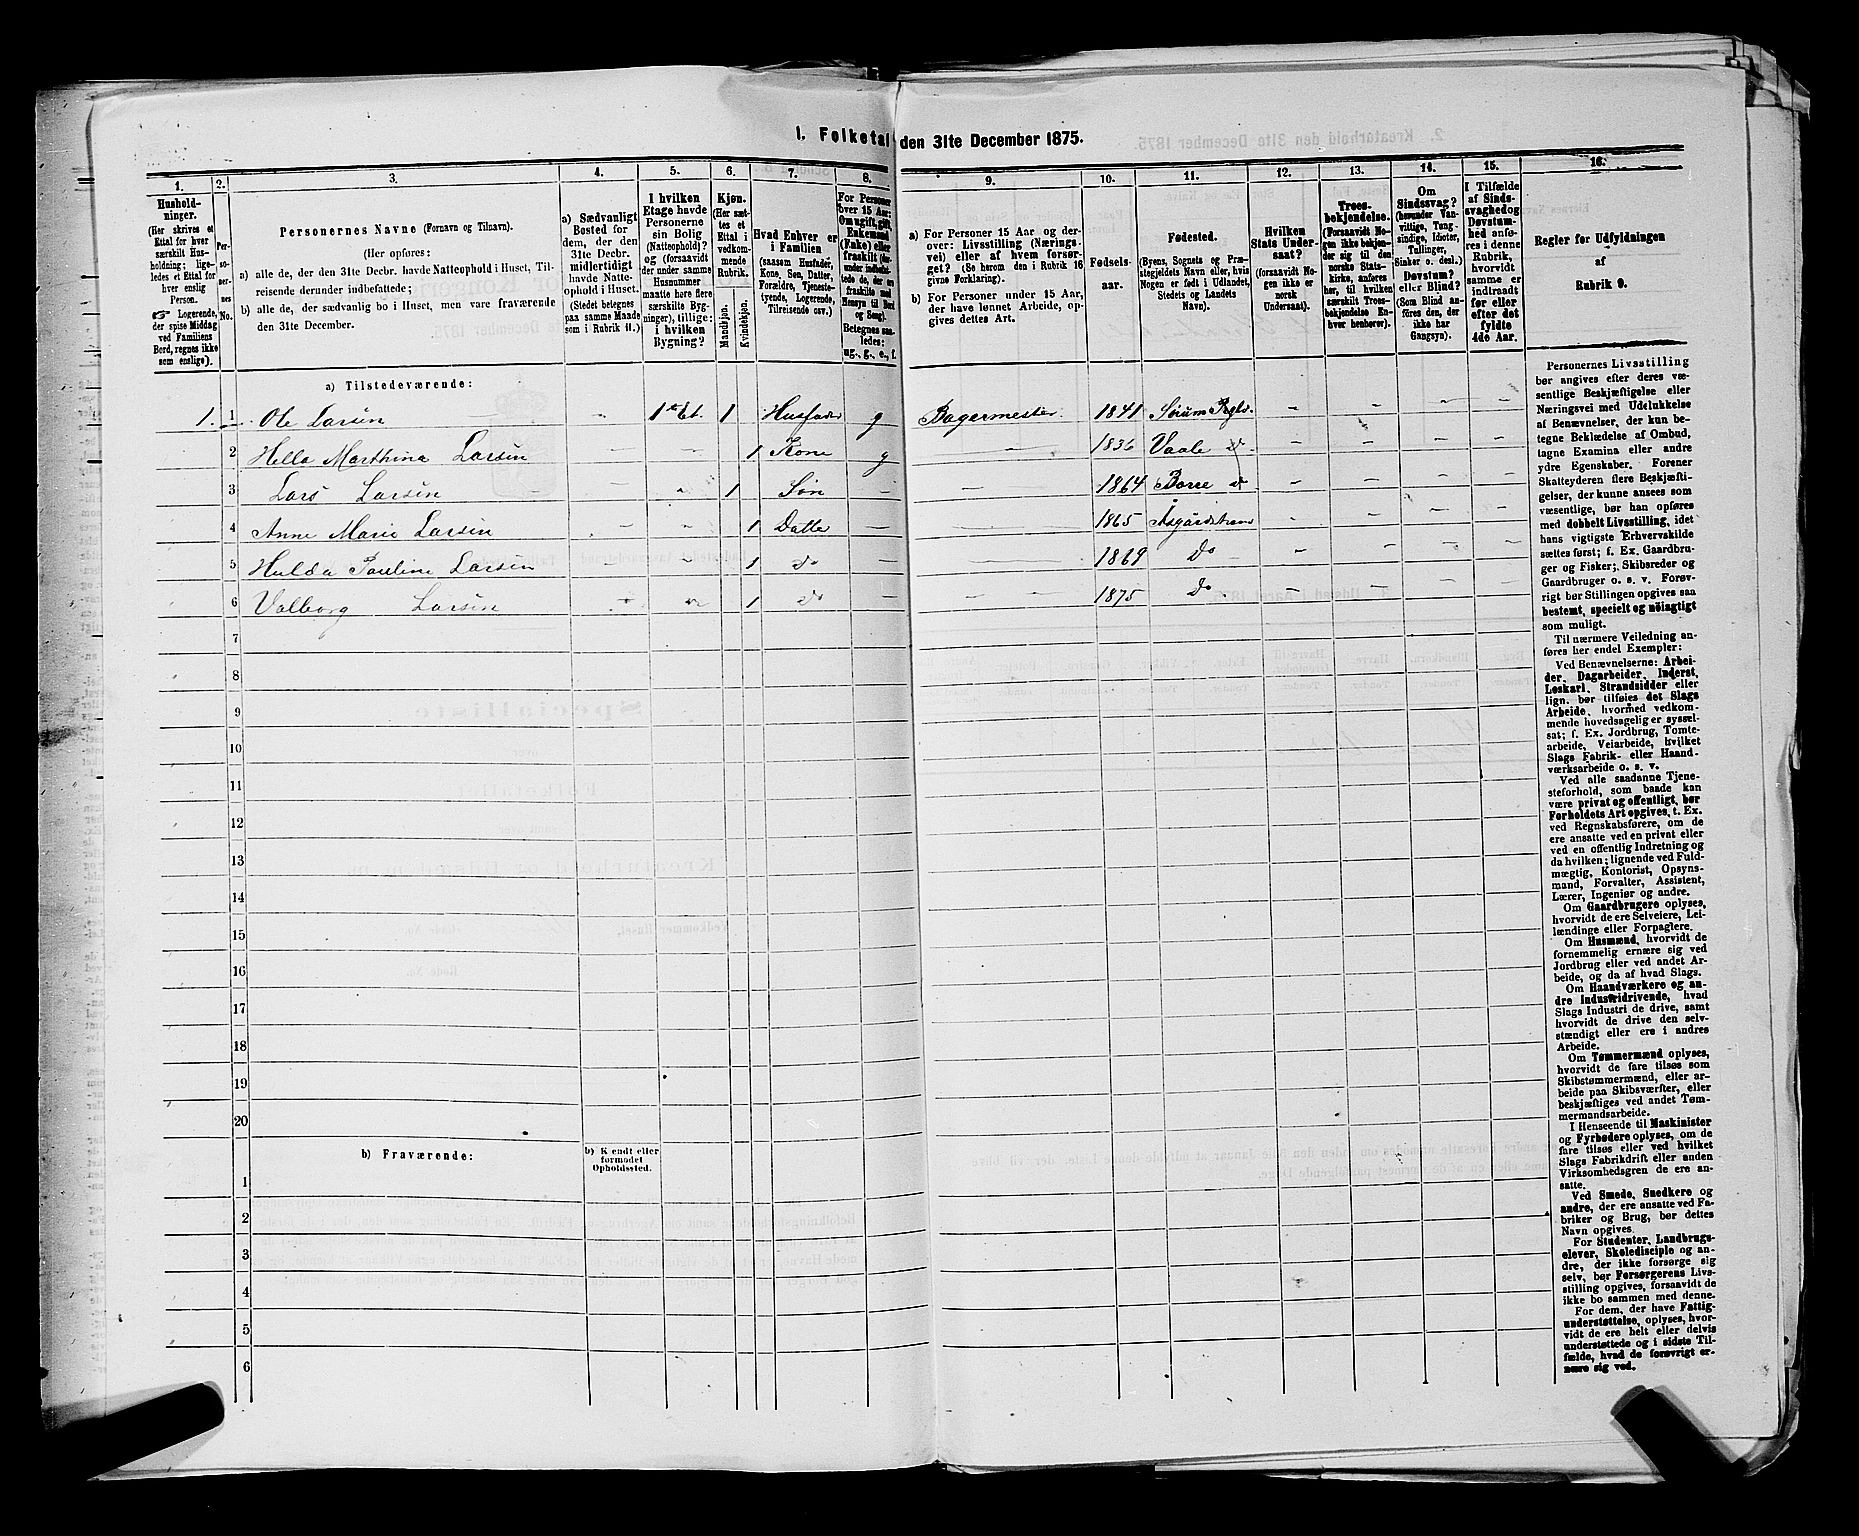 1. Folketal den 31te December 1875.
1.
2.
3.
4.
5.
6.
7.
8.
9.
10.
11.
12.
13.
14.
15.
16.
Hushold-
ninger.
(Her skrives et
Ettal for hver
særskilt Hus-
holdning; lige-
ledes et Ettal for
hver enslig
Person.
☞ Logerende,
der spise Middag
ved Familiens
Bord, regnes ikke
som enslige).
Per-
so-
ner-
nes
No.
Personernes Navne (Fornavn og Tilnavn).
(Her opføres:
a) alle de, der den 31te Decbr. havde Natteophold i Huset, Til-
reisende derunder indbefattede;
b) alle de, der sædvanlig bo i Huset, men vare fraværende
den 31te December.
a) Sædvanligt
Bosted for
dem, der den
31te Decbr.
midlertidigt
havde Natte-
ophold i Huset.
(Stedet betegnes
paa samme Maade
som i Rubrik 11.)
I hvilken
Etage havde
Personerne
sin Bolig
(Natteophold)?
og (forsaavidt
der under samme
Husnummer
maatte høre flere
særskilte Byg-
ninger), tillige:
i hvilken
Bygning?
Kjøn.
(Her sæt-
tes et
Ettal i
vedkom-
mende
Rubrik.
Mandkjøn.
Kvindekjøn.
Hvad Enhver er
i Familien
(saasom Husfader,
Kone, Søn, Datter,
Forældre, Tjeneste-
tyende, Logerende,
Tilreisende osv.)
For Personer
over 15 Aar:
Om ugift, gift,
Enkemand
(Enke) eller
fraskilt
Betegnes saa-
ledes:
ug., g., e., f.
a) For Personer 15 Aar og der-
over: Livsstilling (Nærings-
vei) eller af hvem forsør-
get? (Se herom den i Rubrik 16
givne Forklaring).
b) For Personer under 15 Aar,
der have lønnet Arbeide, op-
gives dettes Art.
Fødsels-
aar.
Fødested.
(Byens, Sognets og Præ-
stegjeldets Navn eller, hvis
Nogen er født i Udlandet,
Stedets og Landets
Navn).
Hvilken
Stats Under-
saat?
(forsaavidt No-
gen ikke er
norsk
Undersaat).
Troes-
bekjendelse.
(Forsaavidt No-
gen ikke bekjen-
der sig til den
norske Stats-
kirke, anføres
her, til hvilken
særskilt Troes-
bekjendelse En-
hver henhører).
Om
Sindssvag?
(herunder Van-
vittige, Tung-
sindige, Idioter,
Tullinger,
Sinker o. desl.)
Døvstum?
eller Blind?
(Som Blind an-
føres den, der
ikke har
Gangsyn).
I Tilfælde
af Sinds-
svaghed og
Døvstum-
hed anfø-
res i denne
Rubrik,
hvorvidt
samme er
indtraadt
før eller
efter det
fyldte
4de Aar.
Regler for Udfyldningen
af
Rubrik 9.
a) Tilstedeværende:
1. 1 Ole Larsen - 1ste Et. 1 Husfader g Bagermester 1841 Sørum Pgld. - - - -
2 Hella Marthina Larsen - - 1 Kone g - 1836 Vaale do - - - -
3 Lars Larsen - - 1 Søn - - 1864 Borre do - - - -
4 Anne Marie Larsen - - 1 Datte - - 1865 Åsgårdstran - - - -
5 Hulda Pauline Larsen - - 1 do - - 1869 Do - - - -
6 Valborg Larsen - - 1 do - - 1875 Do - - - -
7
8
9
10
11
12
13
14
15
16
17
18
19
20
b) Fraværende:
b) Kjendt eller
formodet
Opholdssted.
1
2
3
4
5
6
Personernes Livsstilling
bør angives efter deres væ-
sentlige Beskjæftigelse eller
Næringsvei med Udelukkelse
af Benævnelser, der kun be-
tegne Beklædelse af Ombud,
tagne Examina eller andre
ydre Egenskaber. Forener
Skatteyderen flere Beskjæfti-
gelser, der kunne ansees som
væsentlige, bør han opføres
med dobbelt Livsstilling, idet
hans vigtigste Erhvervskilde
sættes først; f. Ex. Gaardbru-
ger og Fisker; Skibsreder og
Gaardbruger o. s. v. Forøv-
rigt bør Stillingen opgives saa
bestemt, specielt og nöiagtigt
som muligt.
Til nærmere Veiledning an-
føres her endel Exempler:
Ved Benævnelserne: Arbei-
der, Dagarbeider, Inderst,
Løskarl, Strandsidder eller
lign. bør tilføies det Slags
Arbeide, hvormed vedkom-
mende hovedsagelig er syssel-
sat; f. Ex. Jordbrug, Tomte-
arbeide, Veiarbeide, hvilket
Slags Fabrik- eller Haand-
værksarbeide o. s. v.
Ved alle saadanne Tjene-
steforhold, som baade kan
være privat og offentligt, bør
Forholdets Art opgives, t. Ex.
ved Regnskabsførere, om de
ere ansatte ved en privat eller
ved en offentlig Indretning og
da hvilken; lignende ved Fuld-
mægtig, Kontorist, Opsyns-
mand, Forvalter, Assistent,
Lærer, Ingeniør og andre.
Om Gaardbrugere oplyses,
hvorvidt de ere Selveiere, Lei-
lændinge eller Forpagtere.
Om Husmænd, hvorvidt de
fornemmelig ernære sig ved
Jordbrug eller ved andet Ar-
beide, og da af hvad Slags.
Om Haandværkere og an-
dre Industridrivende, hvad
Slags Industri de drive, samt
hvorvidt de drive den selv-
stændigt eller ere i andres
Arbeide.
Om Tømmermænd oplyses,
hvorvidt de fare tilsøs som
Skibstømmermænd, eller ar-
beide paa Skibsværfter, eller
beskjæftiges ved andet Tøm-
mermandsarbeide.
I Henseende til Maskinister
og Fyrbødere oplyses, om de
fare tilsøs eller ved hvilket
Slags Fabrikdrift eller anden
Virksomhedsgren de ere an-
satte.
Ved Smede, Snedkere og
andre, der ere ansatte ved Fa-
briker og Brug, bør dettes
Navn opgives.
For Studenter, Landbrugs-
elever, Skoledisciple og an-
dre, der ikke forsørge sig
selv, bør Forsørgerens Livs-
stilling opgives, forsaavidt de
ikke bo sammen med denne.
For dem, der have Fattig-
understøttelse, oplyses, hvor-
vidt de ere helt eller delvis
understøttede og i sidste Til-
fælde, hvad de forøvrigt er-
nære sig ved.